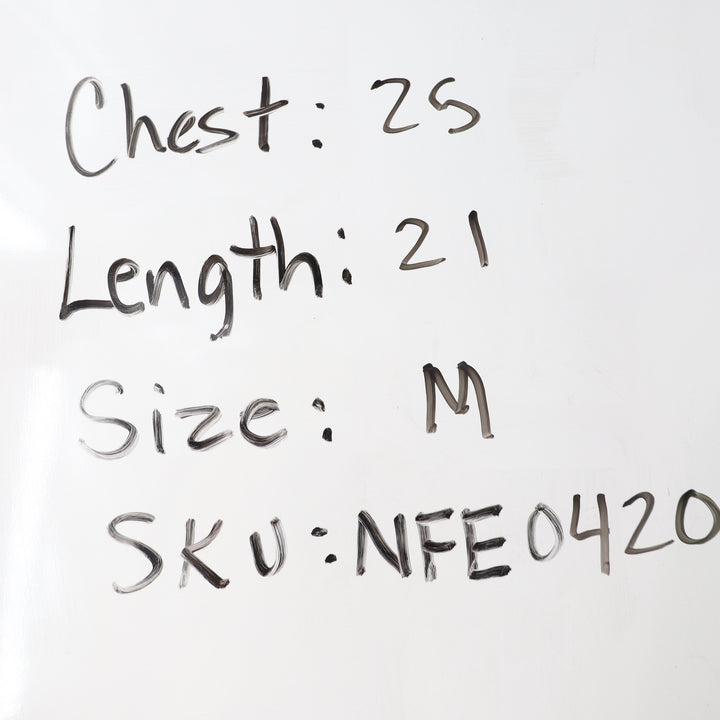 Chest: 25
Length: 21
Size: M
SKU: NFE0420